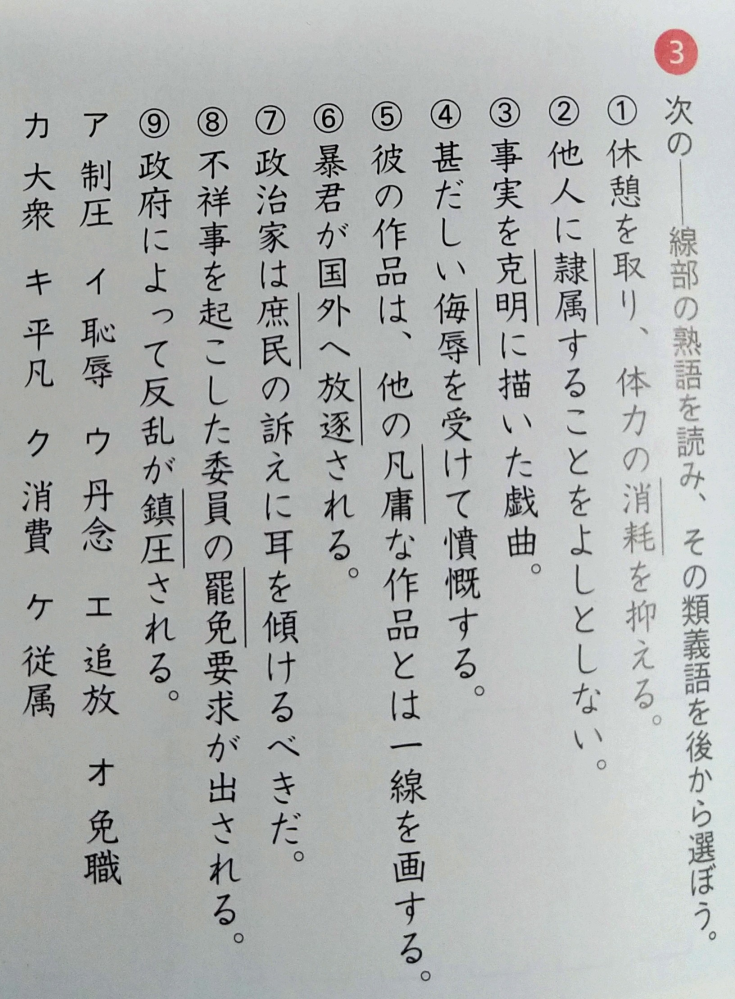 3 次の――線部の熟語を読み、その類義語を後から選ぼう。
①休憩を取り、体力の消耗を抑える。
②他人に隷属することをよしとしない。
③事実を克明に描いた戯曲。
④甚だしい侮辱を受けて憤慨する。
⑤彼の作品は、他の凡庸な作品とは一線を画する。
⑥暴君が国外へ放逐される。
⑦政治家は庶民の訴えに耳を傾けるべきだ。
⑧不祥事を起こした委員の罷免要求が出される。
⑨政府によって反乱が鎮圧される。
ア 制圧 イ 恥辱 ウ 丹念 エ 追放 オ 免職
カ 大衆 キ 平凡 ク 消費 ケ 従属